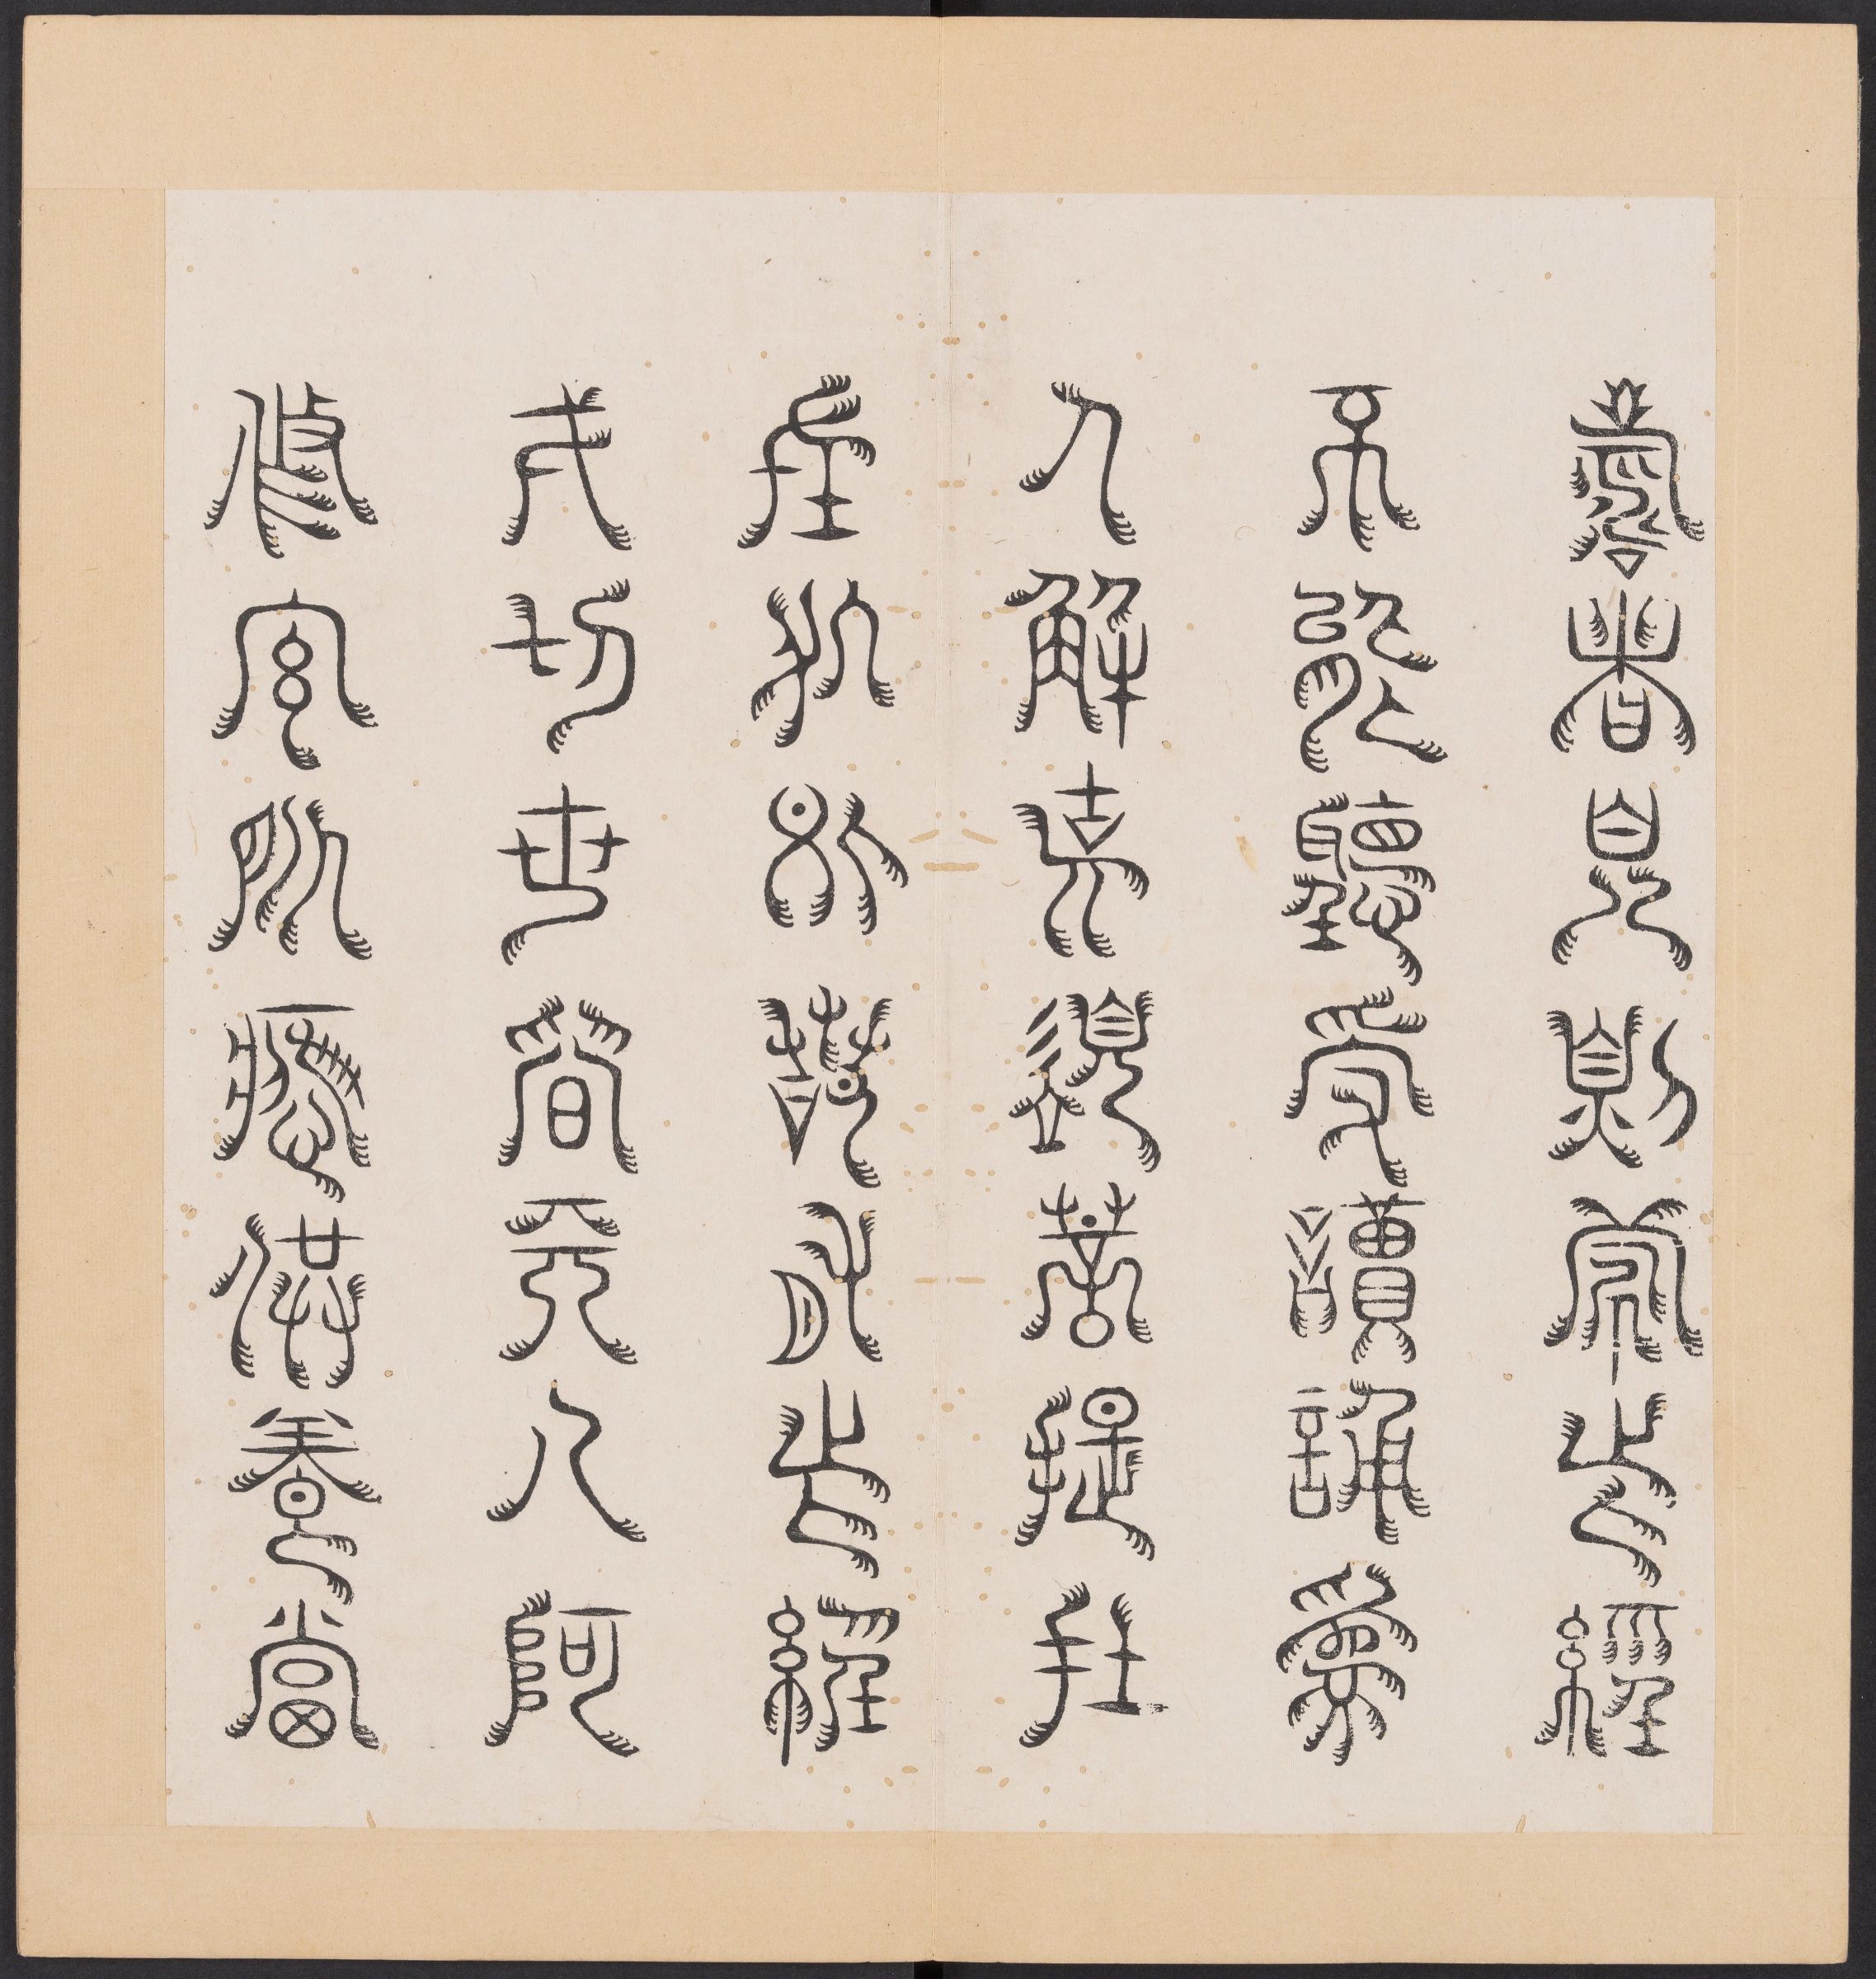 壽者見則於此經
不能聽受讀誦為
人解說須菩提在
在處處若有此經
一切世間天人阿
修羅所應供養當